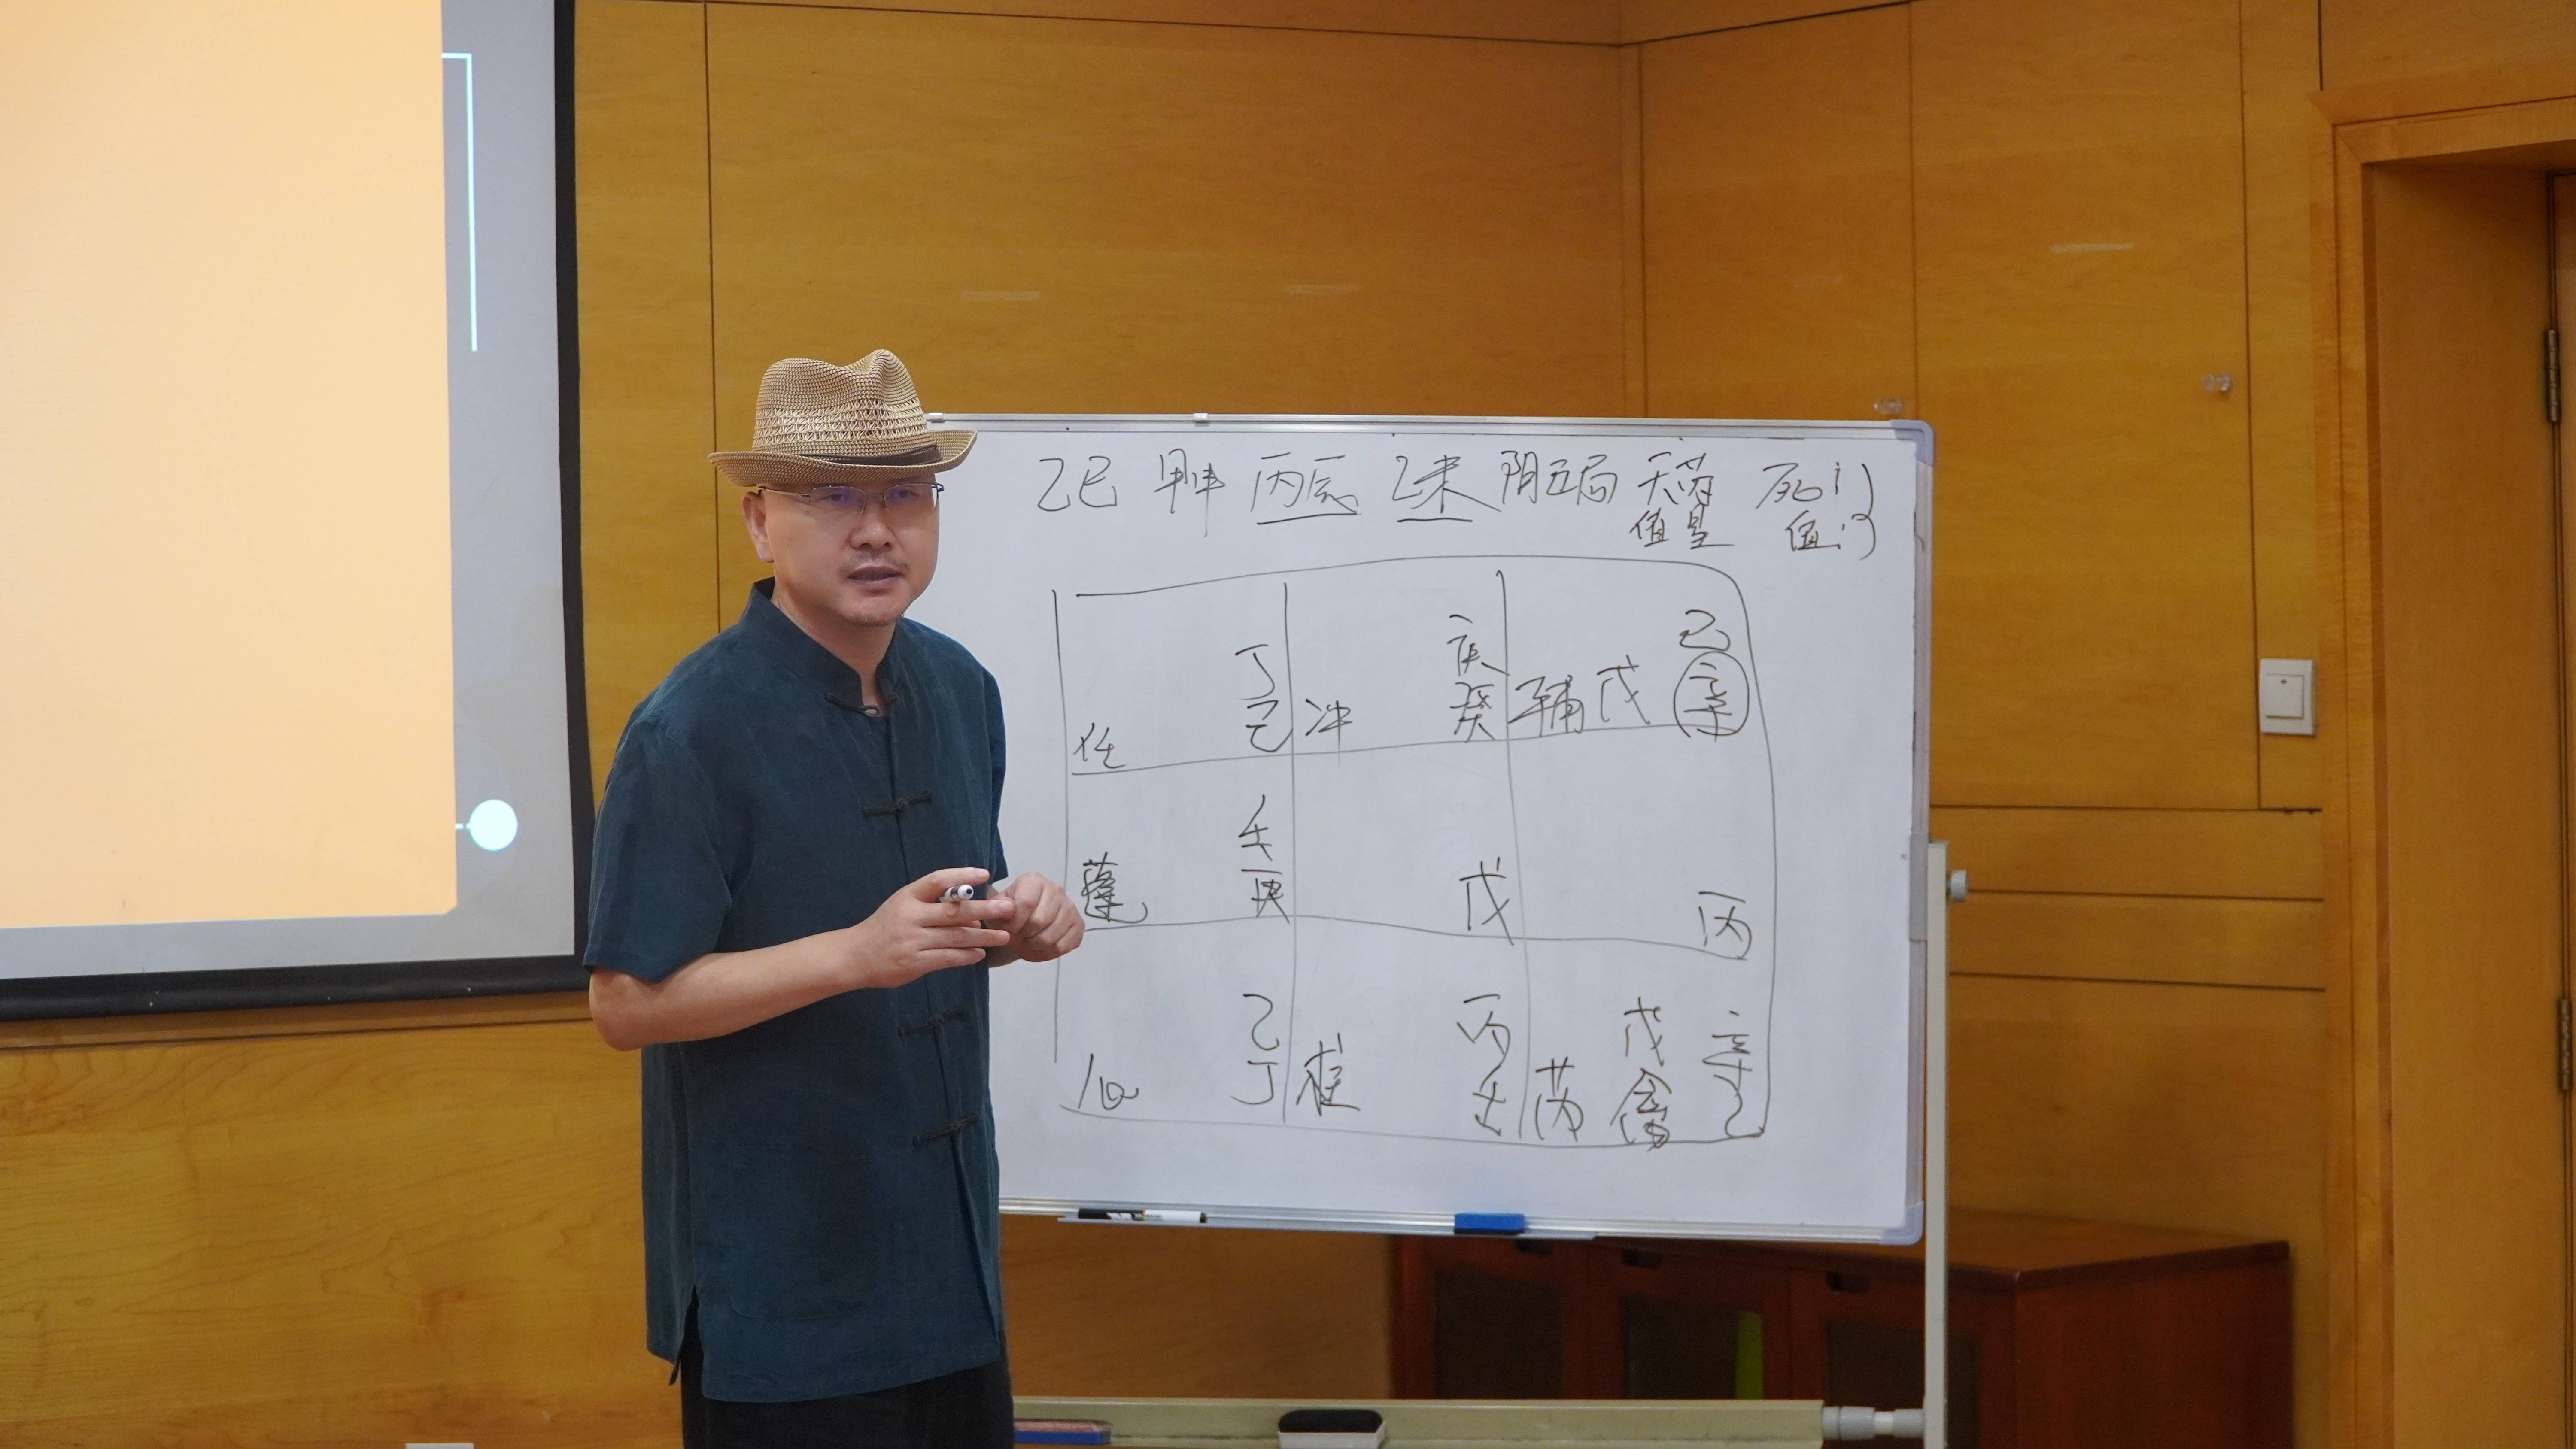 乙巳 甲申 丙辰 乙未 阴五局 天芮 死门
值星 值门
丁 庚 己
任 乙 冲 癸 辅 戊 辛
壬
蓬 庚 戊 丙
乙 丙 戊 辛
丁 壬 芮 禽 乙